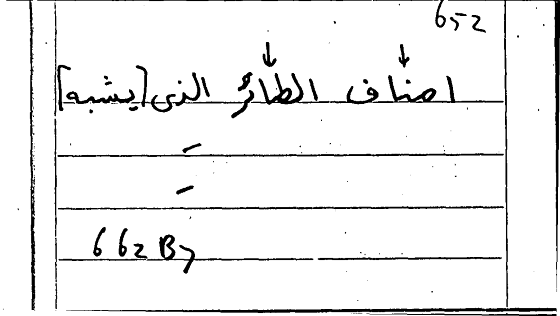 652
اصناف الطائر الذى [يشبه]
–
–
662 B7